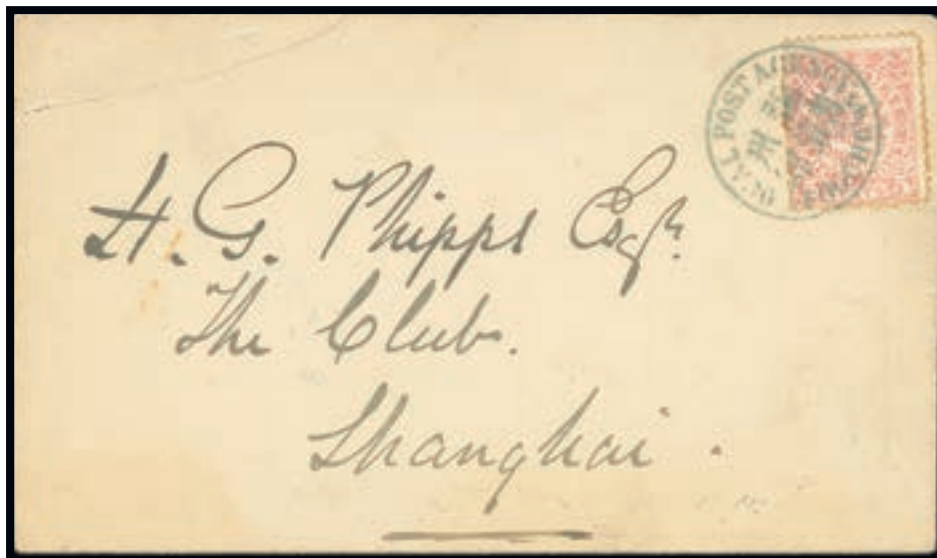 LOCAL POST AGENCY
H. G. Phipps Esqr.
The Club.
Shanghai.